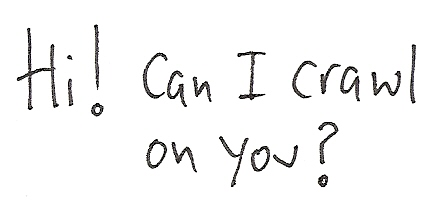 Hi! Can I crawl
on you?